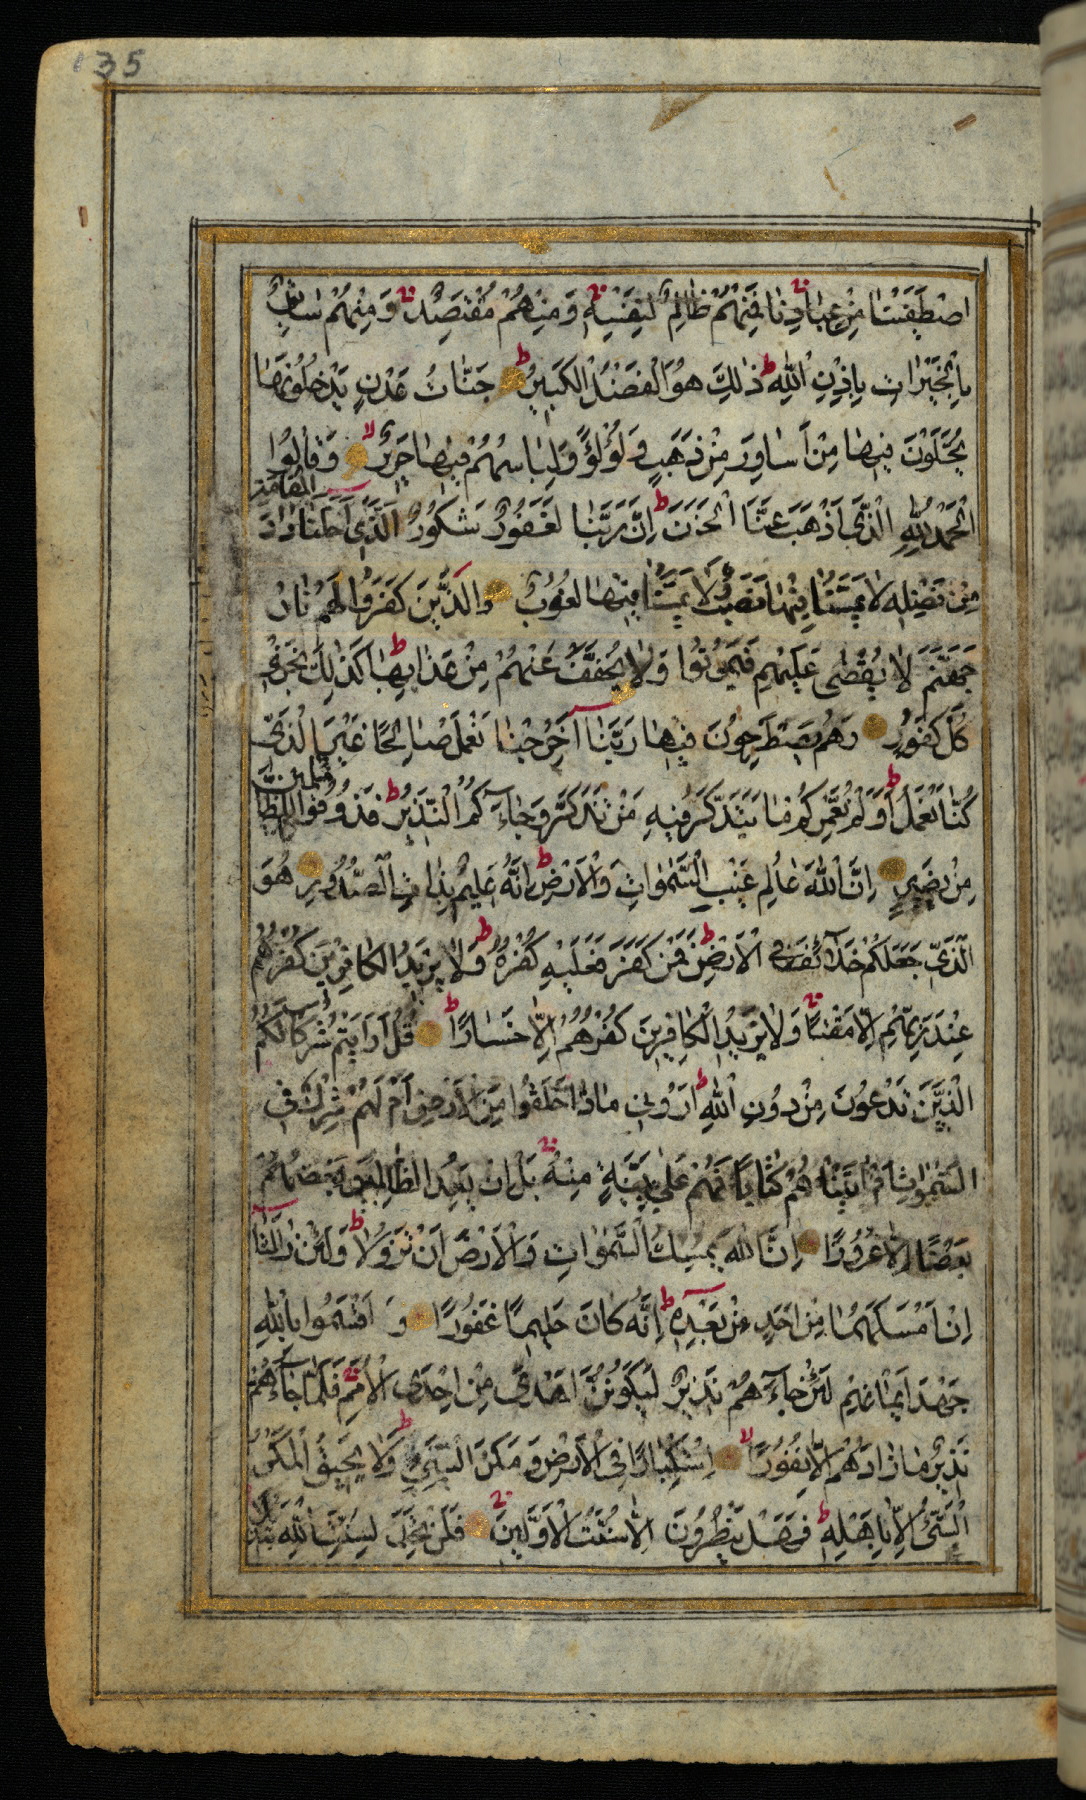 135
اصْطَفَيْنَا مِنْ عِبَادِنَا فَمِنْهُمْ ظَالِمٌ لِنَفْسِهِ وَمِنْهُمْ مُقْتَصِدٌ وَمِنْهُمْ سَابِقٌ
بِالْخَيْرَاتِ بِاِذْنِ اللّٰهِ ط ذٰلِكَ هُوَ الْفَضْلُ الْكَبِيرُ ط جَنَّاتُ عَدْنٍ يَدْخُلُونَهَا
يُحَلَّوْنَ فِيهَا مِنْ اَسَاوِرَ مِنْ ذَهَبٍ وَلُؤْلُؤًا وَلِبَاسُهُمْ فِيهَا حَرِيرٌ لا وَقَالُوا
الْحَمْدُ لِلّٰهِ الَّذِي اَذْهَبَ عَنَّا الْحَزَنَ ط اِنَّ رَبَّنَا لَغَفُورٌ شَكُورٌ الَّذِي اَحَلَّنَا دَارَ الْمُقَامَةِ
مِنْ فَضْلِهِ لَا يَمَسُّنَا فِيهَا نَصَبٌ وَلَا يَمَسُّنَا فِيهَا لُغُوبٌ وَالَّذِينَ كَفَرُوا لَهُمْ نَارُ
جَهَنَّمَ لَا يُقْضَى عَلَيْهِمْ فَيَمُوتُوا وَلَا يُخَفَّفُ عَنْهُمْ مِنْ عَذَابِهَا ط كَذٰلِكَ نَجْزِي
كُلَّ كَفُورٍ وَهُمْ يَصْطَرِخُونَ فِيهَا رَبَّنَا اَخْرِجْنَا نَعْمَلْ صَالِحًا غَيْرَ الَّذِي
كُنَّا نَعْمَلُ ط اَوَلَمْ نُعَمِّرْكُمْ مَا يَتَذَكَّرُ فِيهِ مَنْ تَذَكَّرَ وَجَاءَكُمُ النَّذِيرُ ط فَذُوقُوا فَمَا لِلظَّالِمِينَ
مِنْ نَصِيرٍ اِنَّ اللّٰهَ عَالِمُ غَيْبِ السَّمٰوَاتِ وَالْاَرْضِ ط اِنَّهُ عَلِيمٌ بِذَاتِ الصُّدُورِ هُوَ
الَّذِي جَعَلَكُمْ خَلَائِفَ فِي الْاَرْضِ ط فَمَنْ كَفَرَ فَعَلَيْهِ كُفْرُهُ ط وَلَا يَزِيدُ الْكَافِرِينَ كُفْرُهُمْ
عِنْدَ رَبِّهِمْ اِلَّا مَقْتًا وَلَا يَزِيدُ الْكَافِرِينَ كُفْرُهُمْ اِلَّا خَسَارًا ط قُلْ اَرَاَيْتُمْ شُرَكَاءَكُمُ
الَّذِينَ تَدْعُونَ مِنْ دُونِ اللّٰهِ ط اَرُونِي مَاذَا خَلَقُوا مِنَ الْاَرْضِ اَمْ لَهُمْ شِرْكٌ فِي
السَّمٰوَاتِ اَمْ اٰتَيْنَاهُمْ كِتَابًا فَهُمْ عَلَى بَيِّنَةٍ مِنْهُ بَلْ اِنْ يَعِدُ الظَّالِمُونَ بَعْضُهُمْ
بَعْضًا اِلَّا غُرُورًا اِنَّ اللّٰهَ يُمْسِكُ السَّمٰوَاتِ وَالْاَرْضَ اَنْ تَزُولَا ط وَلَئِنْ زَالَتَا
اِنْ اَمْسَكَهُمَا مِنْ اَحَدٍ مِنْ بَعْدِهِ ط اِنَّهُ كَانَ حَلِيمًا غَفُورًا وَاَقْسَمُوا بِاللّٰهِ
جَهْدَ اَيْمَانِهِمْ لَئِنْ جَاءَهُمْ نَذِيرٌ لَيَكُونُنَّ اَهْدَى مِنْ اِحْدَى الْاُمَمِ فَلَمَّا جَاءَهُمْ
نَذِيرٌ مَا زَادَهُمْ اِلَّا نُفُورًا لا اسْتِكْبَارًا فِي الْاَرْضِ وَمَكْرَ السَّيِّئِ ط وَلَا يَحِيقُ الْمَكْرُ
السَّيِّئُ اِلَّا بِاَهْلِهِ ط فَهَلْ يَنْظُرُونَ اِلَّا سُنَّتَ الْاَوَّلِينَ فَلَنْ تَجِدَ لِسُنَّتِ اللّٰهِ